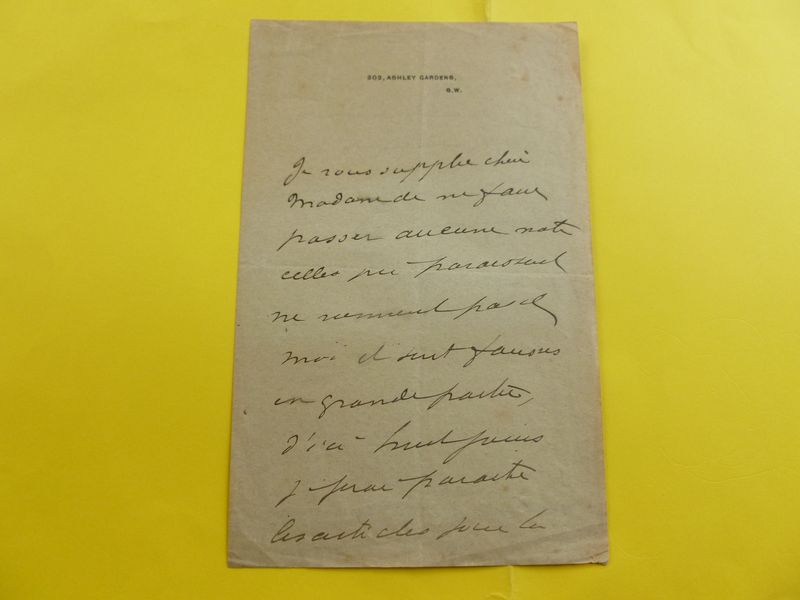 303, ASHLEY GARDENS,
S.W.
Je vous supplie chère
Madame de ne faire
passer aucune note
celles qui paraissent
ne viennent pas de
moi et sont fausses
en grande partie,
d'ici huit jours
je ferai paraître
les articles pour la